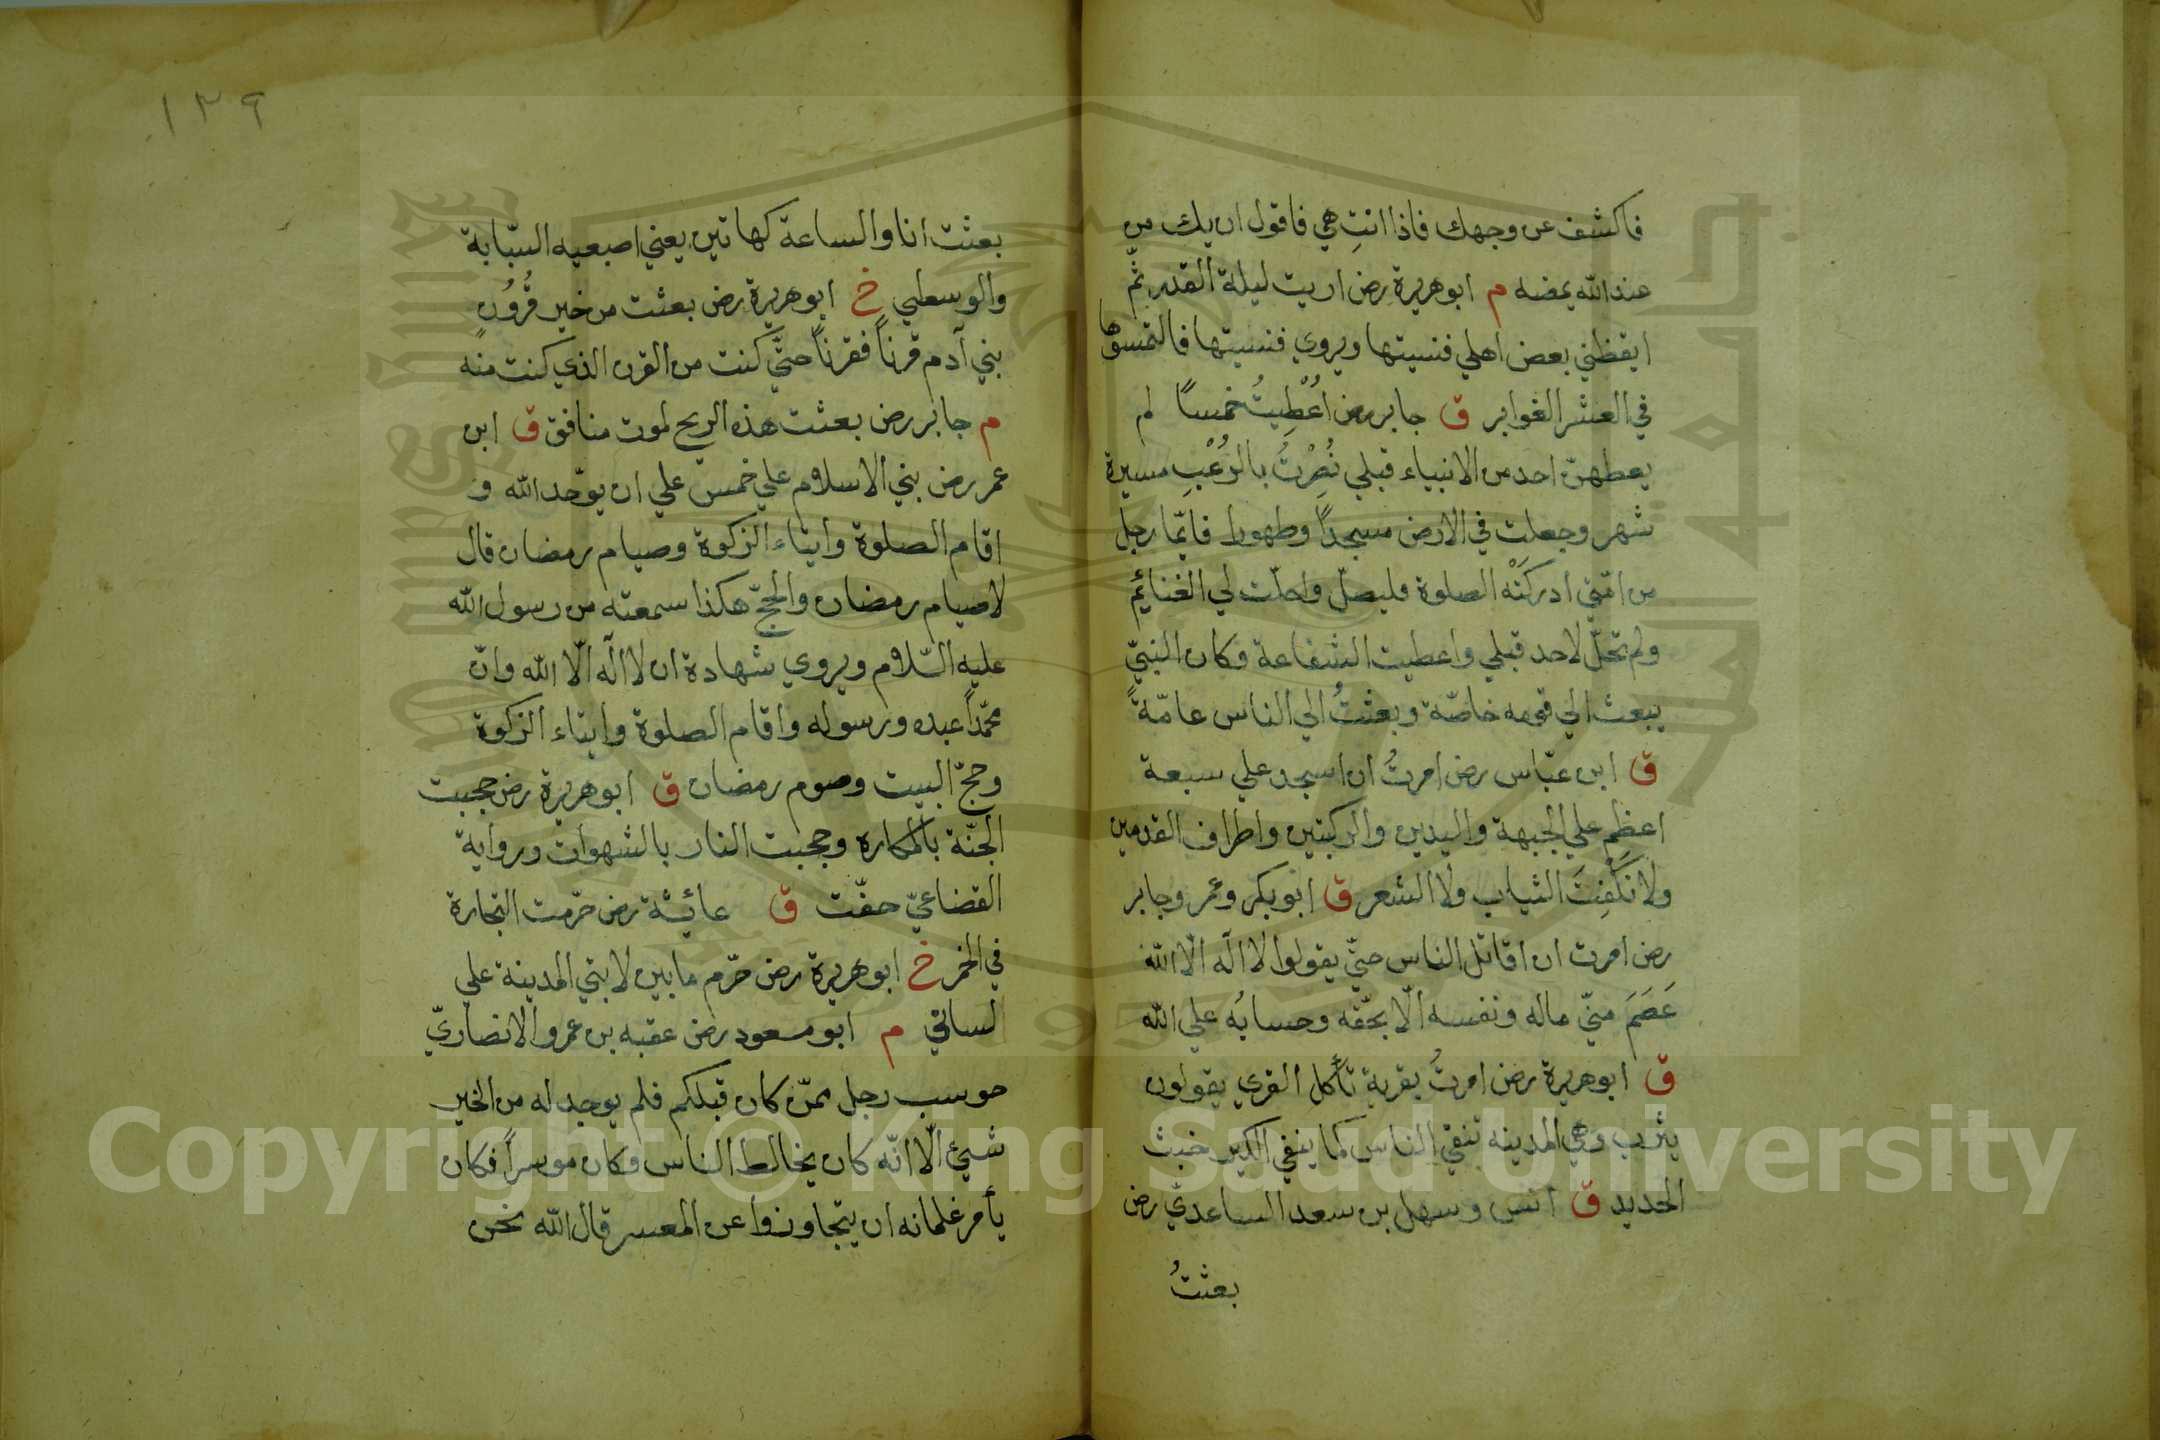 فاكشف عن وجهك فاذا انتِ هي فاقول ان يك من
عند الله يمضه م ابو هريرة رض اريت ليلة القدر ثمّ
ايقظني بعض اهلي فنسيتها ويروي فنسيتها فالتمسوها
في العشر الغوابر ق جابر رض اُعْطِيتُ خمساً لم
يعطهنّ احد من الانبياء قبلي نُصِرْتُ بالرُعْبِ مسيرة
شهر وجعلت في الارض مسجداً وطهورا فايّما رجل
من امّتي ادركَتْه الصلوة فليصلّ واحلّت لي الغنائم
ولم تحلّ لاحد قبلي واعطيت الشفاعة وكان النبيّ
يبعث الي قومه خاصّة وبعثتُ الي الناس عامّةً
ق ابن عبّاس رض امرتُ ان اسجد علي سبعة
اعظم علي الجبهة واليدين والركبتين واطراف القدمين
ولا نَكْفِتَ الثياب ولا الشعر ق ابو بكر وعمر وجابر
رض امرت ان اقاتل الناس حتّي يقولوا لا اله الّا الله
عَصَمَ منّي ماله ونفسه الّا بحقّه وحسابُه علي الله
ق ابو هريرة رض امرتُ بقرية تأكل القري يقولون
يثرب وهي المدينه تنفي الناس كما ينفي الكير خبث
الحديد ق انس وسهل بن سعد الساعديّ رض
بعثتُ
١٣٩
بعثت انا والساعة كهاتين يعني اصبعيه السبّابة
والوسطي خ ابو هريرة رض بعثت من خير قُرُونِ
بني آدم قرناً فقرناً حتّي كنت من القرن الذي كنت منه
م جابر رض بعثت هذه الريح لموت منافق ق ابن
عمر رض بني الاسلام علي خمس علي ان يوحّد الله و
اقام الصلوة وايتاء الزكوة وصيام رمضان قال
لا صيام رمضان والحجّ هكذا سمعته من رسول الله
عليه السّلام ويروي شهادة ان لا اله الّا الله وانّ
محمّداً عبده ورسوله واقام الصلوة وايتاء الزكوة
وحجّ البيت وصوم رمضان ق ابو هريرة رض حجبت
الجنّة بالمكاره وحجبت النار بالشهوات ورواية
القضاعيّ حفّت ق عائشة رض حرّمت التجارة
في الخمر خ ابو هريرة رض حرّم ما بين لابتي المدينة علي
لساني م ابو مسعود رض عقبه بن عمرو الانصاريّ
حوسب رجل ممّن كان قبلكم فلم يوجد له من الخير
شيئ الّا انّه كان يخالط الناس وكان موسراً فكان
يأمر غلمانه ان يتجاوزوا عن المعسر قال الله نحن
Copyright © King Saud University